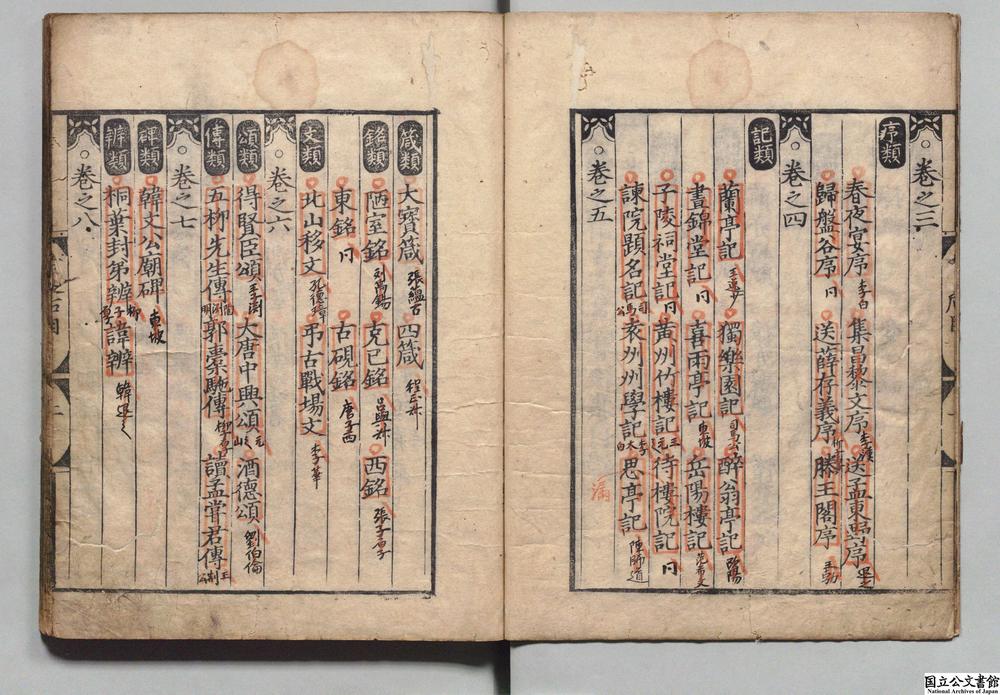 卷之三
序類
春夜宴序 李白 集昌黎文序 李漢 送孟東野序 退之
歸盤谷序 同 送薛存義序 滕王閣序 王勃
卷之四
記類
蘭亭記 王逸少 獨樂園記 司馬公 醉翁亭記 歐陽
晝錦堂記 同 喜雨亭記 東坡 岳陽樓記 范希文
子陵祠堂記 同 黃州竹樓記 王元之 待樓院記 同
諫院題名記 司馬公 袁州州學記 李太白 思亭記 陳師道
卷之五
箴類
大寶箴 張蘊古 四箴 程正叔
銘類
陋室銘 劉禹錫 克己銘 呂與叔 西銘 張子厚
東銘 同 古硯銘 唐子西
文類
北山移文 孔德璋 弔古戰場文 李華
卷之六
頌類
得賢臣頌 王褒 大唐中興頌 元次山 酒德頌 劉伯倫
傳類
五柳先生傳 陶淵明 郭橐駝傳 柳子厚 讀孟嘗君傳 王荆公
卷之七
碑類
韓文公廟碑 東坡
辨類
桐葉封弟辨 柳子厚 諱辨 韓退之
卷之八
国立公文書館
National Archives of Japan